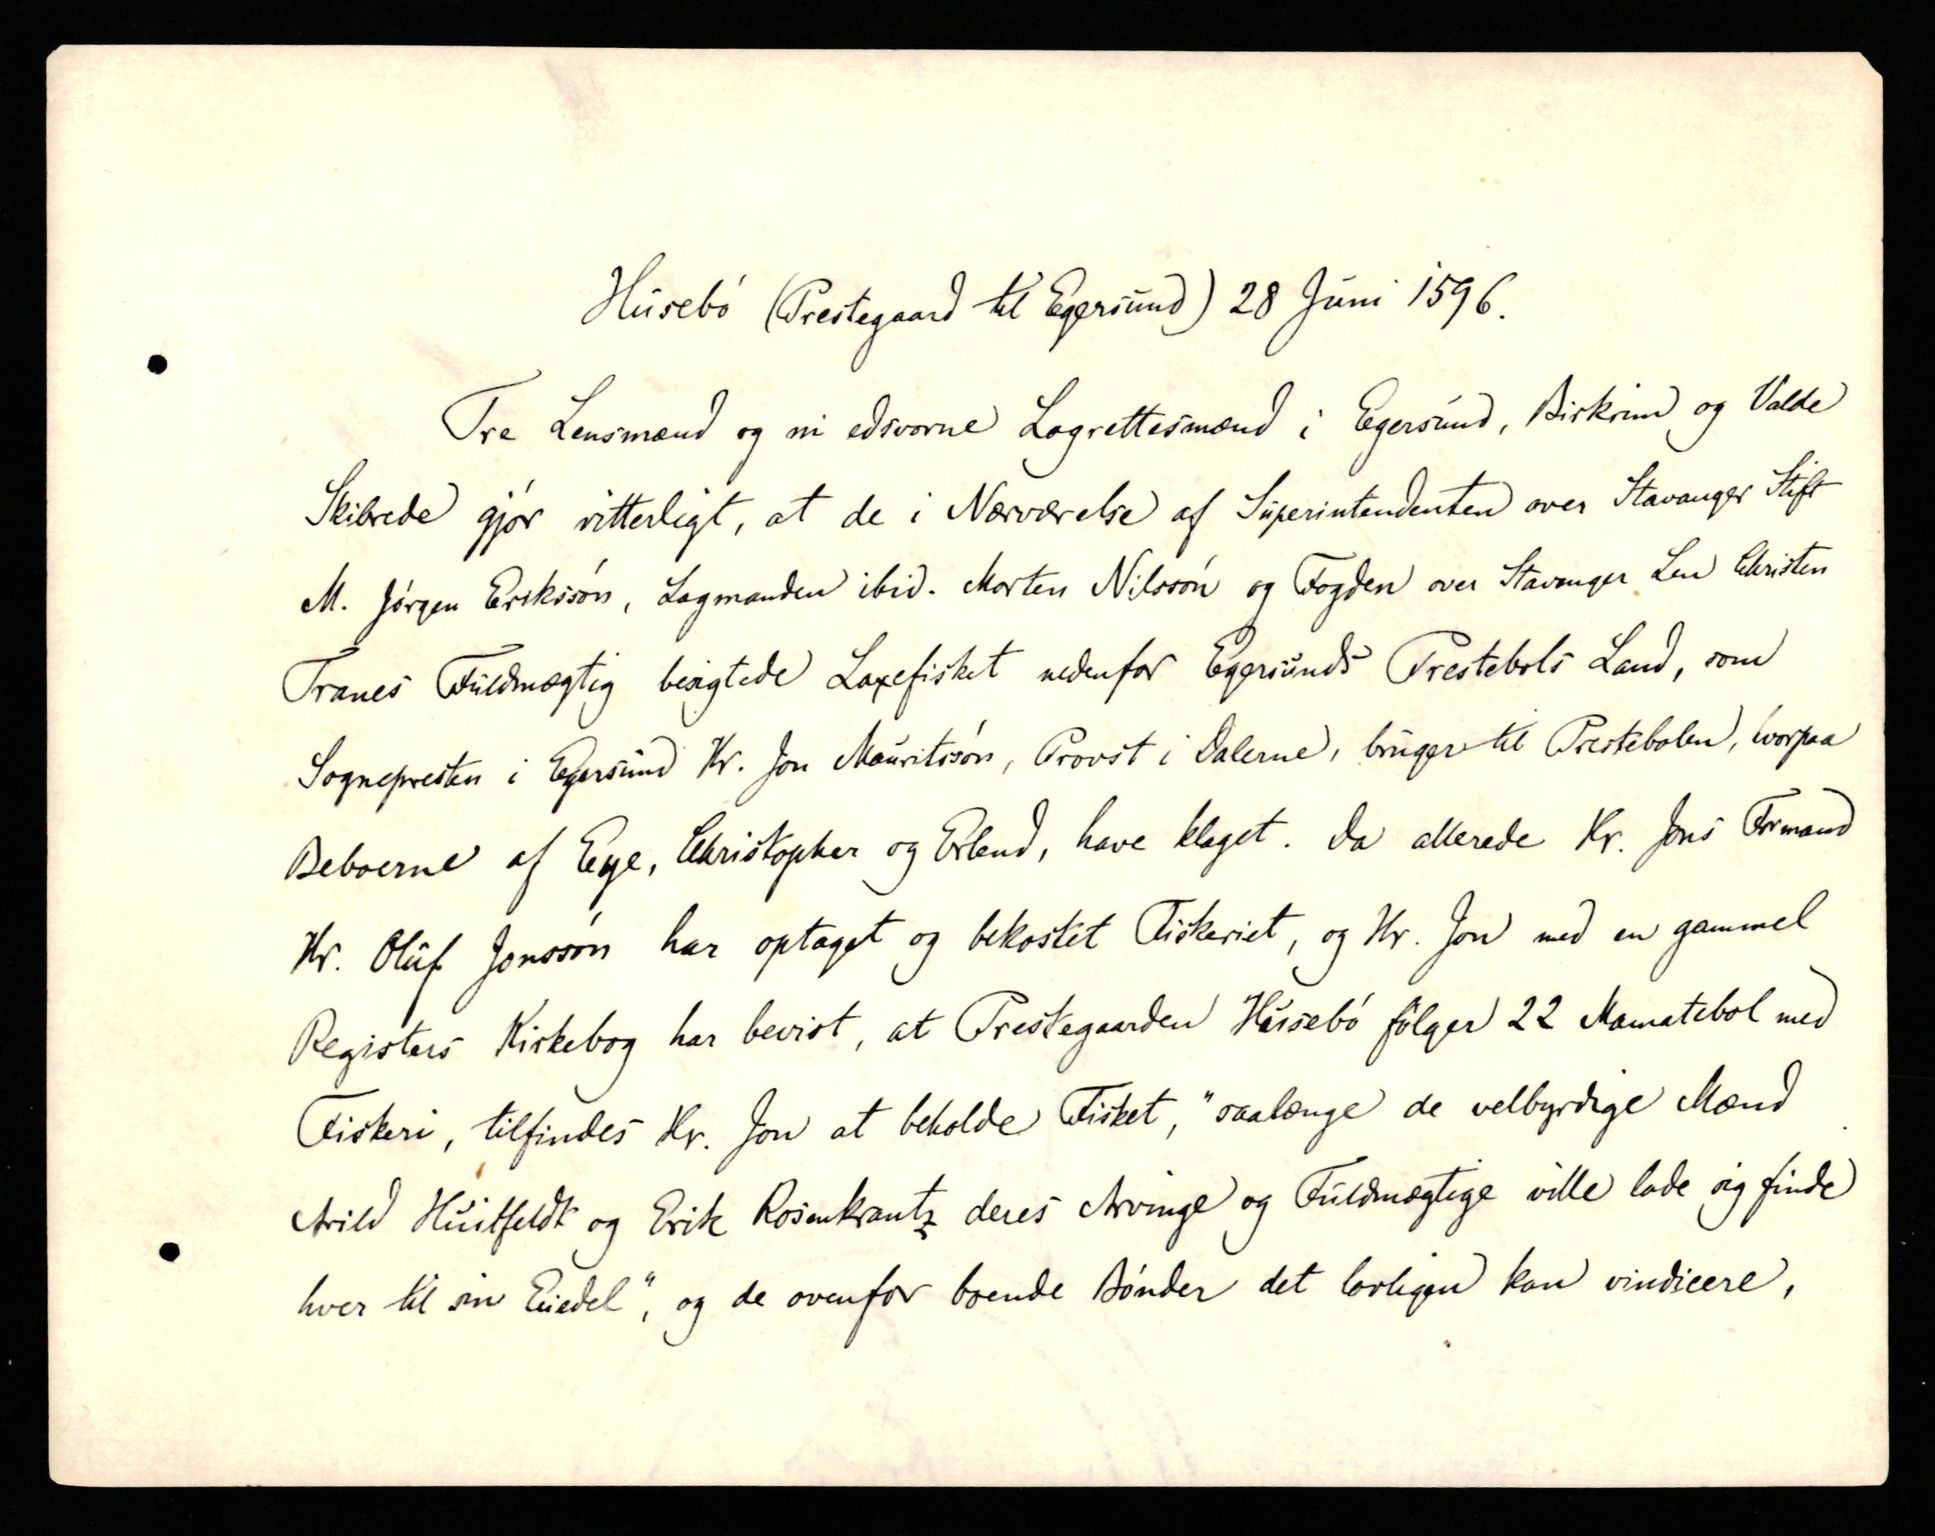 Husebó (Prestegaard til Egersund) 28 Juni 1596.
Tre Lensmænd og ni edsvorne Lagrettesmænd i Egersund, Birkrim og Valde
Skibrede gjór vitterligt, at de i Nærværelse af Superintendenten over Stavanger Stift
M. Jórgen Erikssón, Lagmanden ibid. Morten Nilssón og Fogden over Stavanger Len Christen
Tranes Fuldmægtig besigtede Laxefisket nedenfor Egersunds Prestebols Land, som
Sognepresten i Egersund Hr. Jon Mauritssón, Provst i Dalerne, bruger til Prestebolen, hvorpaa
Beboerne af Eye, Christopher og Erlend, have klaget. Da allerede Hr. Jons Formand
Hr. Oluf Jonssón har optaget og bekostet Fiskeriet, og Hr. Jon med en gammel
Registers Kirkebog har bevist, at Prestegaarden Husebó fólger 22 Mamatebol med
Fiskeri, tilfindes Hr. Jon at beholde Fisket, "saalænge de velbyrdige Mænd
Arild Huitfeldt og Erik Rosenkrantz deres Arvinge og Fuldmægtige ville lade sig finde
hver til sin Eiedel", og de ovenfor boende Bónder det lovligen kan vindicere,